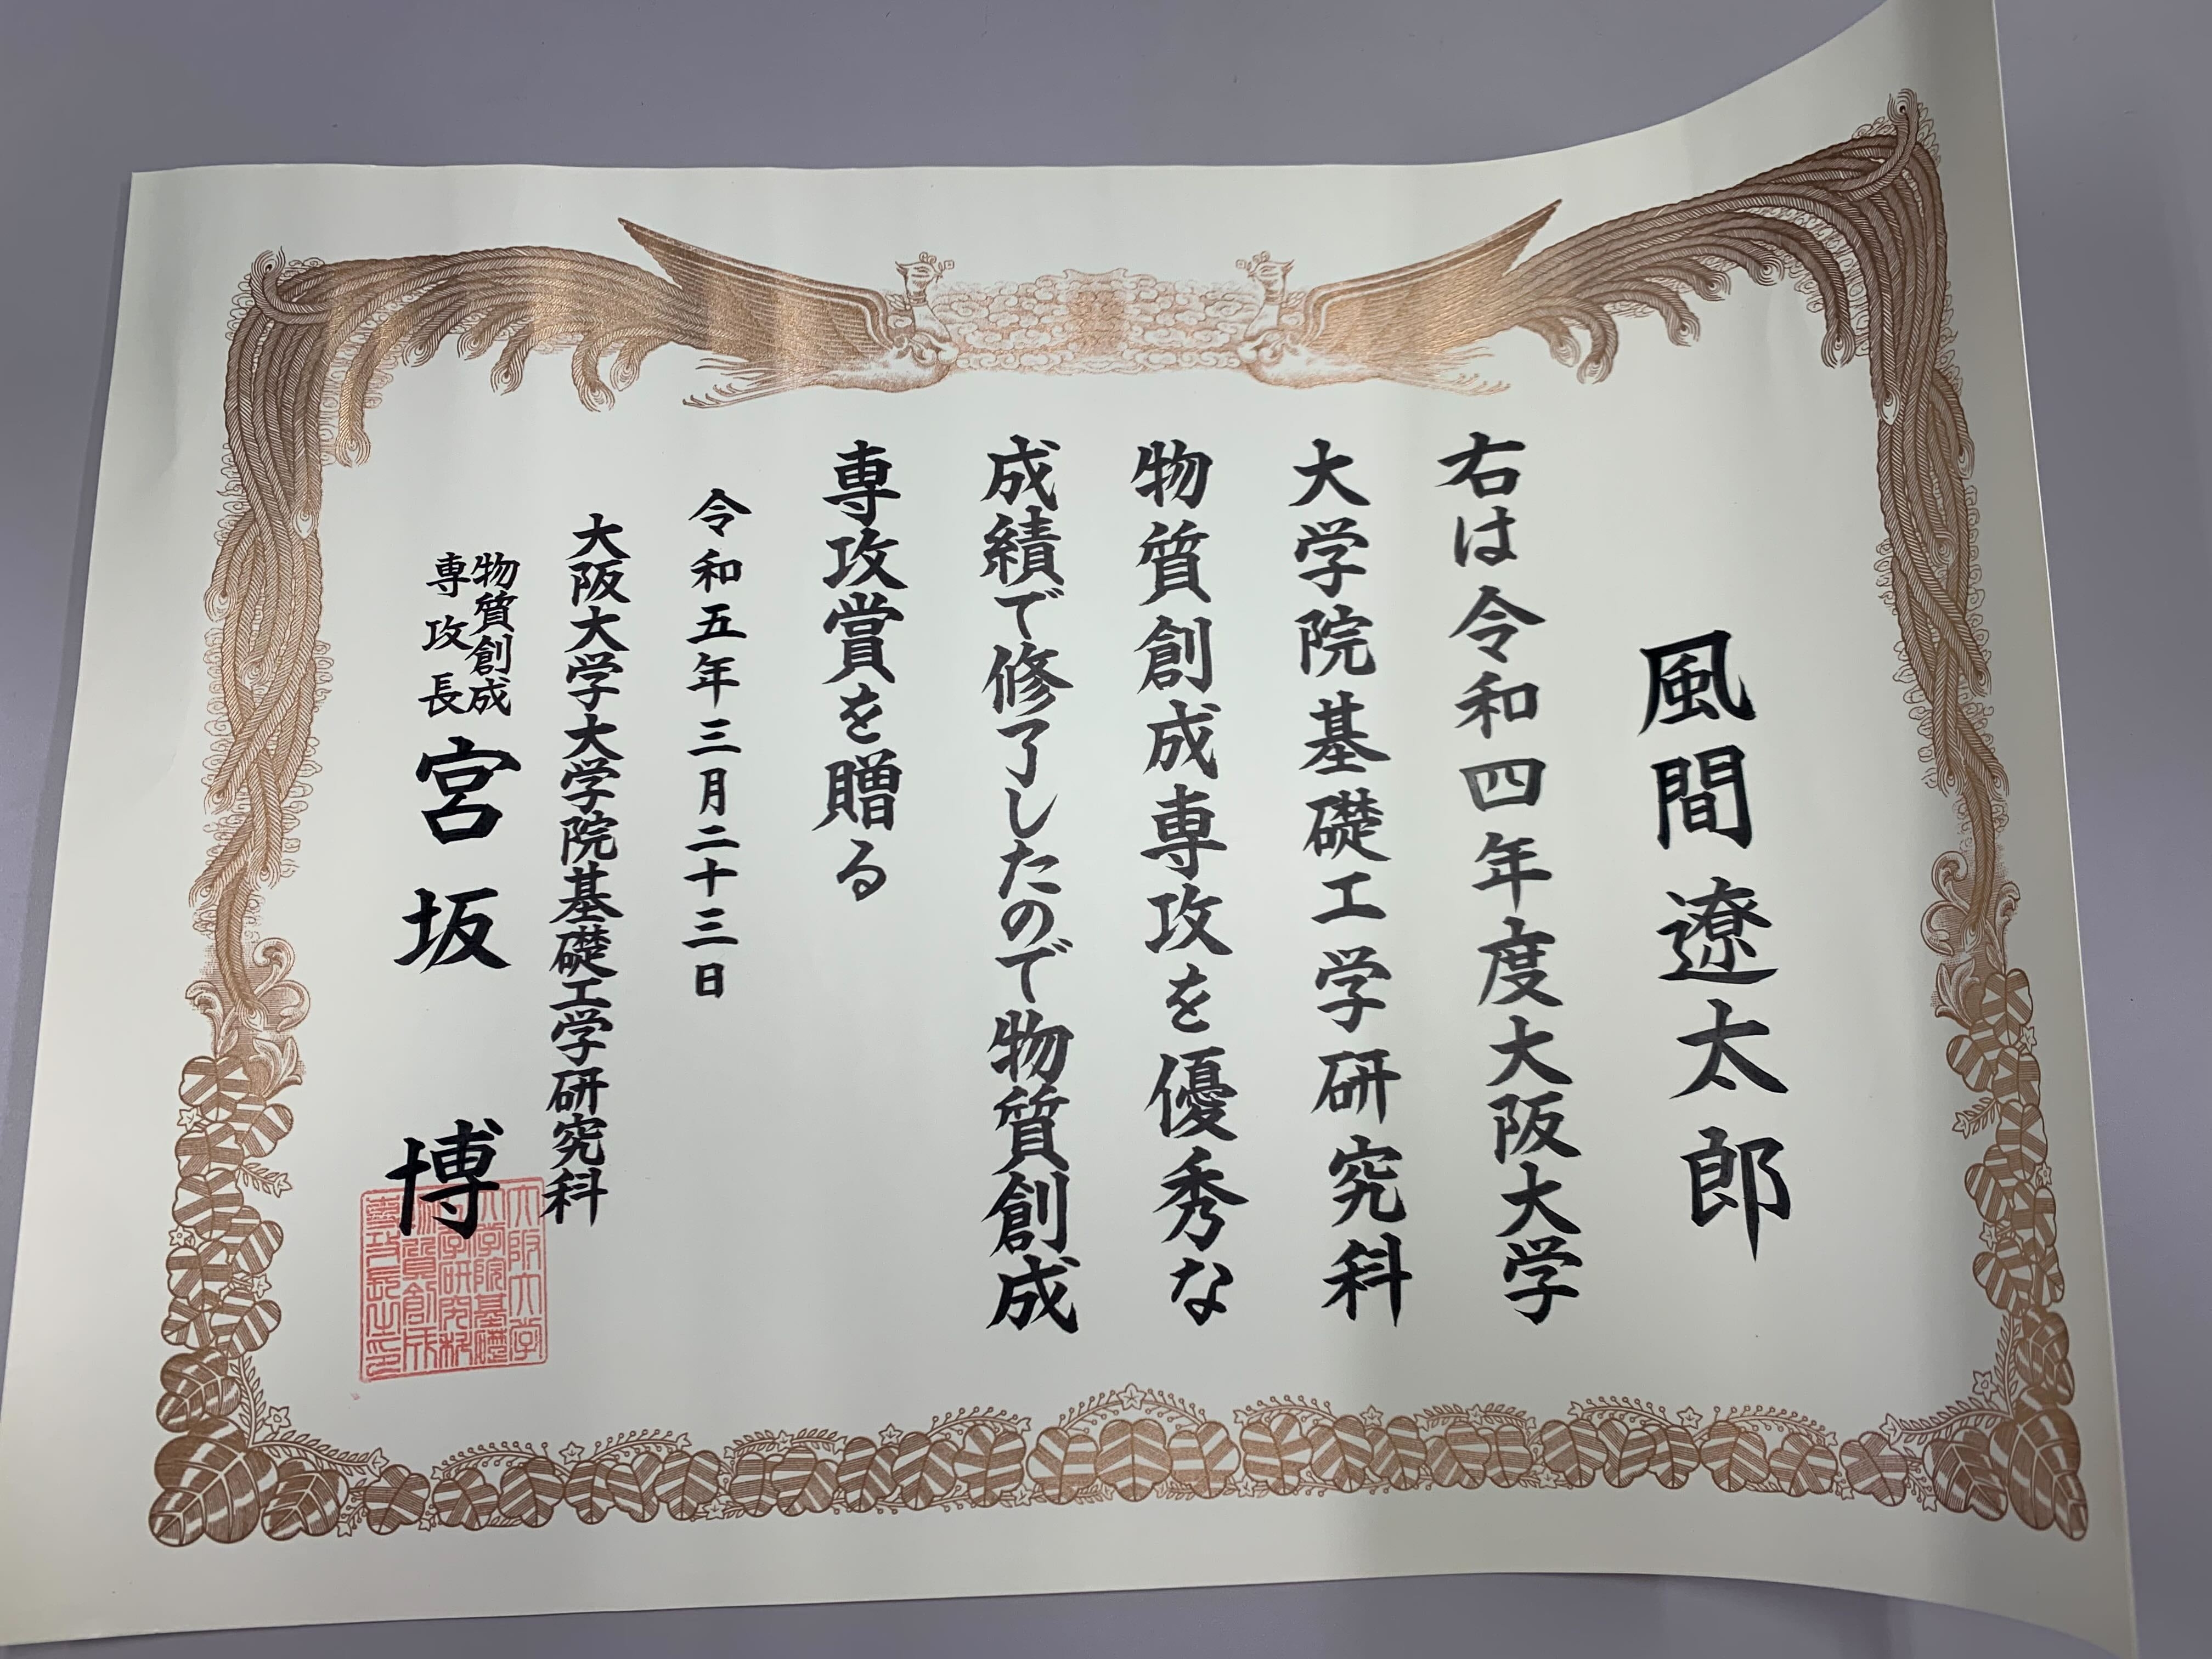 風間遼太郎
右は令和四年度大阪大学
大学院基礎工学研究科
物質創成専攻を優秀な
成績で修了したので物質創成
専攻賞を贈る
令和五年三月二十三日
大阪大学大学院基礎工学研究科
物質創成
専攻長
宮坂博
大阪大学
大学院基礎
工学研究科
物質創成
専攻長之印